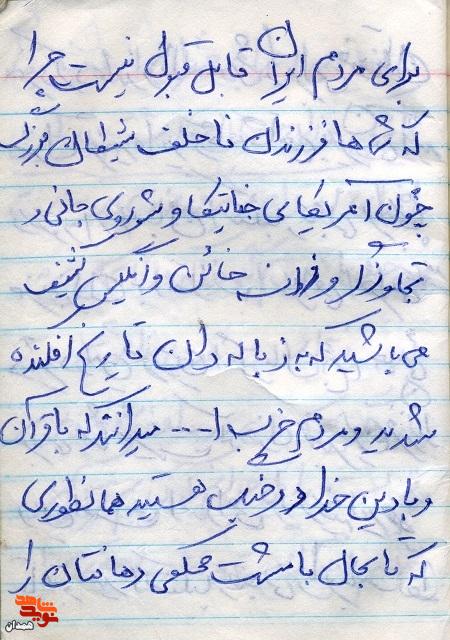 برای مردم ایران قابل قبول نیست چرا
که شماها فرزندان ناخلف شیطان بزرگ
چون آمریکای جنایتکار و شوروی جانی و
تجاوزگر و فرانسه خائن و انگلیس کثیف
می باشید که به زباله دان تاریخ افکنده
شدید و مردم حزب ا... میدانند که با قرآن
و با دین خدا در جنگ هستید همانطوری
که تا بحال با مشت محکمی دهانتان را
نوید شاهد
همدان